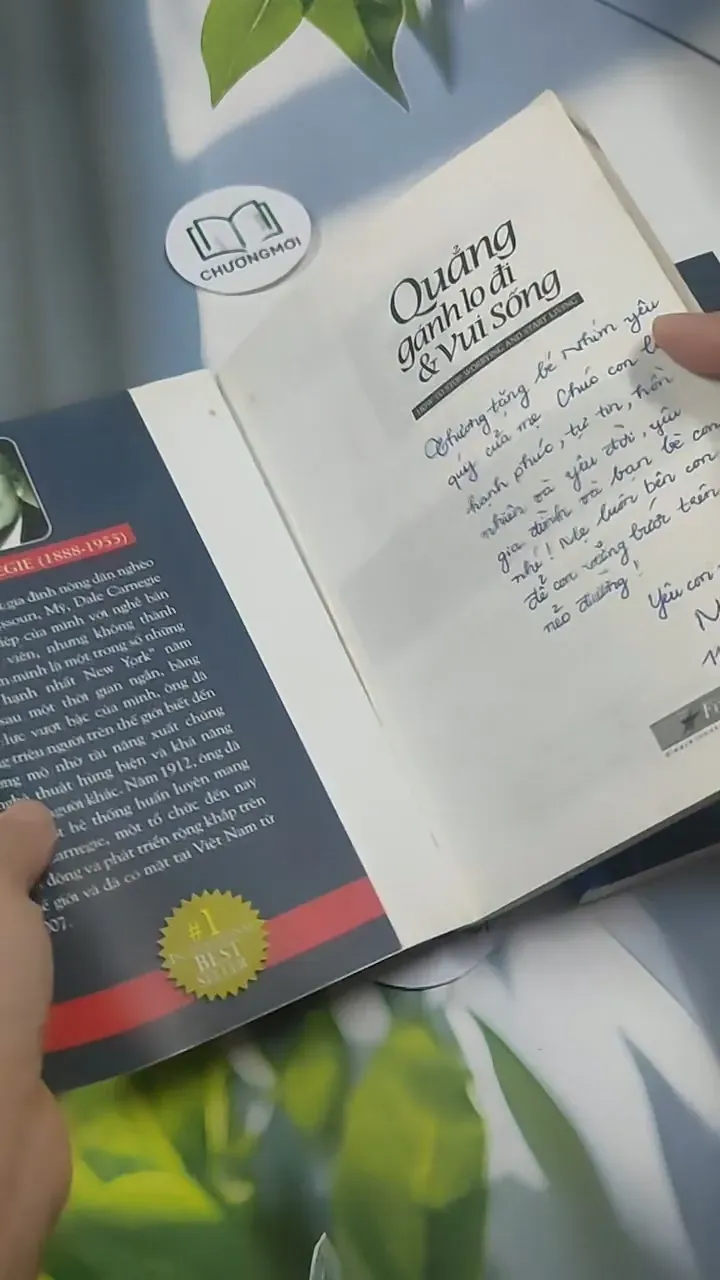 CHƯƠNGMỚI
Quẳng
gánh lo đi
& Vui Sống
HOW TO STOP WORRYING AND START LIVING
Thương tặng bé Nhím yêu
quý của mẹ Chúc con l
hạnh phúc, tự tin, hồn
nhiên và yêu đời, yêu
gia đình và bạn bè con
nhé! Mẹ luôn bên con
để con vững bước trên
nẻo đường!
Yêu con
EGIE (1888-1955)
gia đình nông dân nghèo
issouri, Mỹ, Dale Carnegie
iệp của mình với nghề bán
viên, nhưng không thành
mình là một trong số những
hạnh nhất New York" năm
sau một thời gian ngắn, bằng
lực vượt bậc của mình, ông đã
g triệu người trên thế giới biết đến
ng mộ nhờ tài năng xuất chúng
thuật hùng biện và khả năng
người khác. Năm 1912, ông đã
t hệ thống huấn luyện mang
arnegie, một tổ chức đến nay
động và phát triển rộng khắp trên
ế giới và đã có mặt tại Việt Nam từ
07.
#1
BEST
SELLER